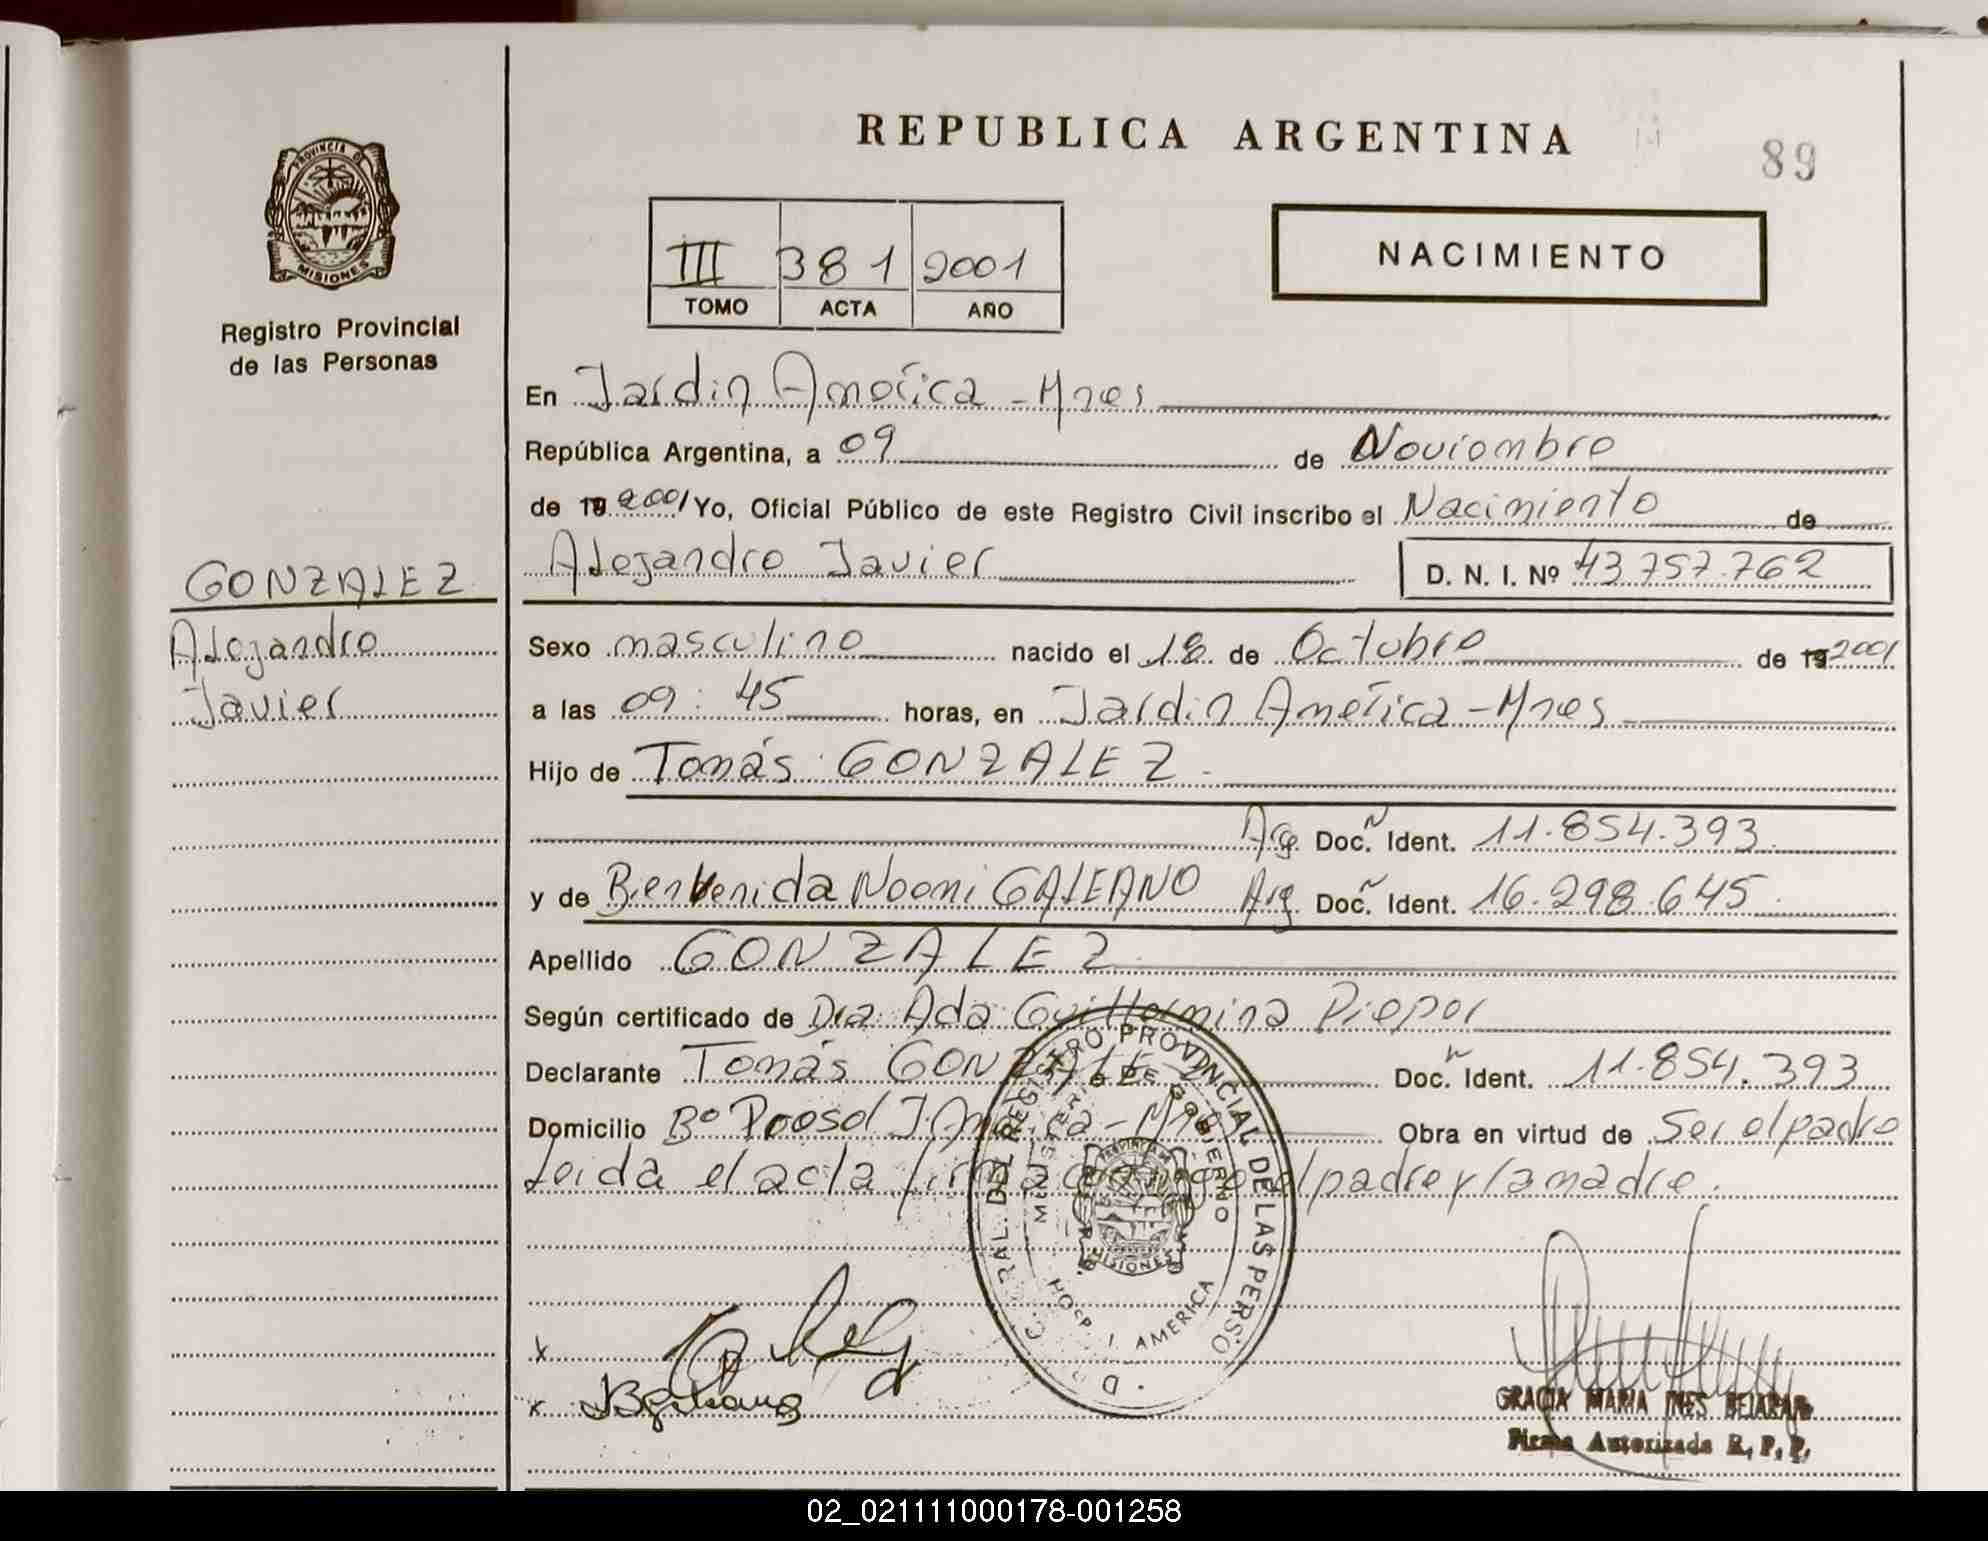 REPUBLICA ARGENTINA
89
PROVINCIA DE
MISIONES
Registro Provincial
de las Personas
III 381 2001
TOMO ACTA AÑO
NACIMIENTO
En Jardin América - Mnes
República Argentina, a 09 de Noviembre
de 19 2001 Yo, Oficial Público de este Registro Civil inscribo el Nacimiento de
Alejandro Javier D. N. I. Nº 43.757.762
GONZALEZ
Alejandro
Javier
Sexo masculino nacido el 18 de Octubre de 19 2001
a las 09:45 horas, en Jardin América - Mnes
Hijo de Tomás GONZALEZ
Arg Doc. Ident. 11.854.393
y de Bienvenida Noemi GALEANO Arg Doc. Ident. 16.298.645
Apellido GONZALEZ
Según certificado de Dra. Ada Guillermina Pieper
Declarante Tomás GONZALEZ Doc. Ident. 11.854.393
Domicilio Bº J. América - Mnes Obra en virtud de Ser el padre
Leida el acta firma conmigo el padre y la madre.
D. GRAL. DEL REGISTRO PROVINCIAL DE LAS PERSO
MINISTERIO DE GOBIERNO
PROVINCIA DE
MISIONES
HOSP. J. AMERICA
x
x
GRACIA MARIA INES BEJARANO
Firma Autorizada R. P. P.
02_021111000178-001258